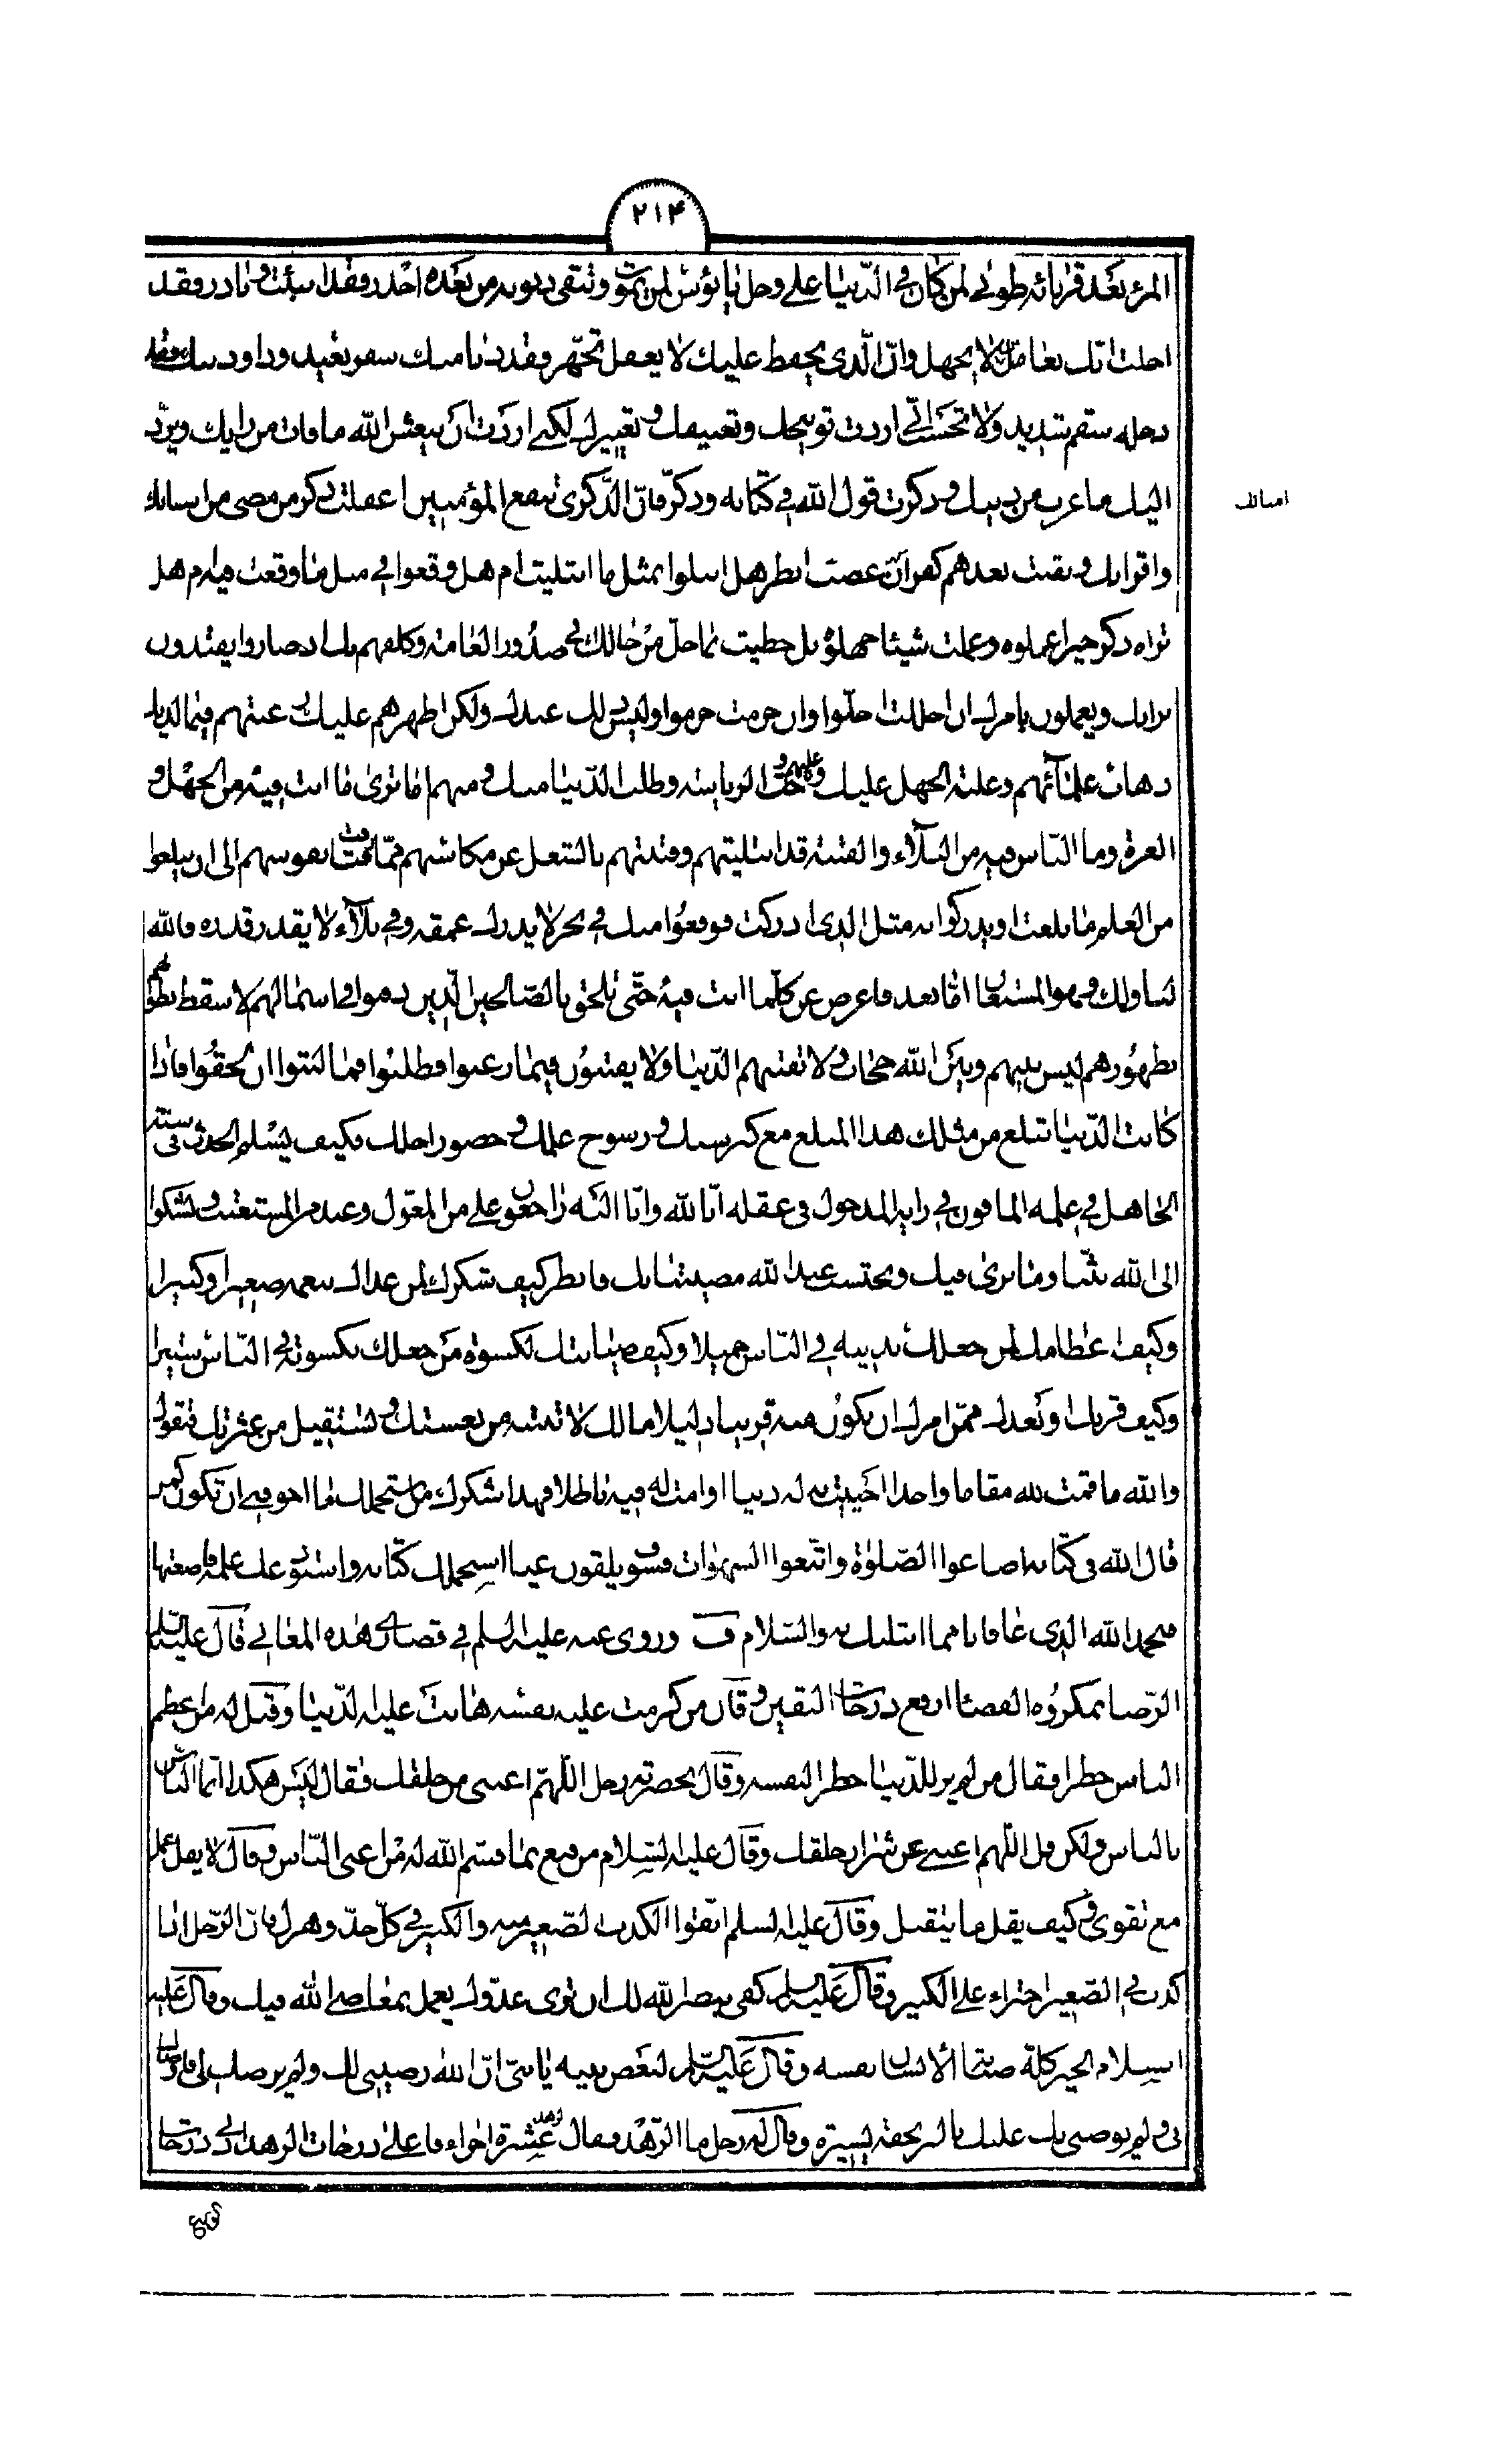 ٢١۴
المرء بعد قرنائه طوبى لمن كان في الدنيا على وجل يا بؤس لمن يموت وتبقى ذنوبه من بعده احذر وفقد نبئت وبادر وفقد
اجلت انك تعامل من لا يجهل وان الذي يحفظ عليك لا يغفل تجهز وفقد دنا منك سفر بعيد وداو ذنبك وفقد
دخله سقم شديد ولا تحسب اني اردت توبيخك وتعنيفك وتعييرك لكني اردت ان ينعش الله ما فات من رايك ويرد
اليك ما عزب من دينك وذكرت قول الله في كتابه وذكر فان الذكرى تنفع المؤمنين اغفلت ذكر من مضى من اسنانك
امسالك
واقرانك وبقيت بعدهم كقرن اعضب انظر هل ابتلوا بمثل ما ابتليت ام هل وقعوا في مثل ما وقعت فيه ام هل
تراه ذكر خيرا عملوه وعملت شيئا جهلوه بل حظيت بما حل من حالك في صدور العامة وكلفهم بك اذ صاروا يقتدون
برايك ويعملون بامرك ان احللت احلوا وان حرمت حرموا وليس ذلك عندك ولكن اظهرهم عليك رغبتهم فيما لديك
ذهاب علمائهم وغلبة الجهل عليك وعليهم وحب الرياسة وطلب الدنيا منك ومنهم اما ترى ما انت فيه من الجهل و
الغرة وما الناس فيه من البلاء والفتنة قد ابتليتهم وفتنتهم بالشغل عن مكاسبهم مما رأوا فتاقت نفوسهم الى ان يبلغوا
من العلم ما بلغت او يدركوا به مثل الذي ادركت فوقعوا منك في بحر لا يدرك عمقه وفي بلاء لا يقدر قدره فالله
لنا ولك وهو المستعان اما بعد فاعرض عن كلما انت فيه حتى تلحق بالصالحين الذين دفنوا في اسمالهم لاصقة بطونهم
بظهورهم ليس بينهم وبين الله حجاب لا تفتنهم الدنيا ولا يفتنون فيما رغبوا فطلبوا فما لبثوا ان لحقوا فاذا
كانت الدنيا تبلغ من مثلك هذا المبلغ مع كبر سنك ورسوخ علمك وحضور اجلك فكيف يسلم الحدث في سنه
الجاهل في علمه المافون في رايه المدخول في عقله انا لله وانا اليه راجعون على من المعول وعند من المستعتب نشكوا
الى الله بثنا وما نرى فيك ونحتسب عند الله مصيبتنا بك فانظر كيف شكرك لمن غذاك بنعمه صغيرا وكبيرا
وكيف اعظامك لمن جعلك بدينه في الناس جميلا وكيف صيانتك لكسوة من جعلك بكسوته في الناس ستيرا
وكيف قربك او بعدك ممن امرك ان تكون منه قريبا ذليلا مالك لا تنتبه من نعستك وتستقيل من عثرتك فتقول
والله ما قمت لله مقاما واحدا احييت به له دينا او امت له فيه باطلا فهذا شكرك من استحملك ما اخوفني ان تكون كمن
قال الله في كتابه اضاعوا الصلوة واتبعوا الشهوات فسوف يلقون غيا استحملك كتابه واستودعك علمه فاضعتها
فنحمد الله الذي عافانا مما ابتلاك به والسلام ف وروى عنه عليه السلم في قصار هذه المعاني قال عليه السلم
الرضا بمكروه القضا ارفع درجات اليقين وقال من كرمت عليه نفسه هانت عليه الدنيا وقيل له من اعظم
الناس خطرا فقال من لم ير للدنيا خطرا لنفسه وقال بحضرته رجل اللهم اغننى من خلقك فقال ليس هكذا انما الناس
بالناس ولكن قل اللهم اغنني عن شرار خلقك وقال عليه السلام من قنع بما قسم الله له من اغنى الناس وقال لا يقل عمل
مع تقوى وكيف يقل ما يتقبل وقال عليه السلم اتقوا الكذب الصغير منه والكبير في كل جد وهزل فان الرجل اذا
كذب في الصغير اجتراء على الكبير وقال عليه السلم كفى بنصر الله لك ان ترى عدوك يعمل بمعاصى الله فيك وقال عليه
السلام الخير كله صيانة الانسان نفسه وقال عليه السلم لبعض بنيه يا بنى ان الله رضينى لك ولم يرضك لى فاوصاك
بى ولم يوصنى بك عليك بالبر تحفة يسيرة وقال له رجل ما الزهد فقال الزهد عشرة اجزاء فاعلى درجات الزهد ادنى درجات